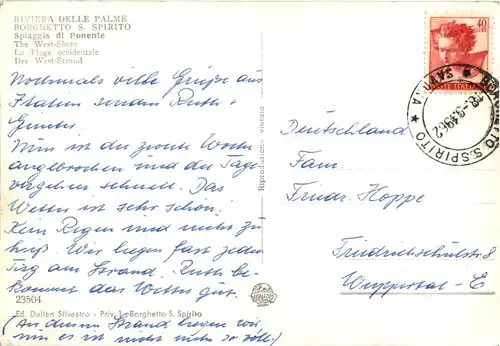 RIVIERA DELLE PALME
BORGHETTO S. SPIRITO
Spiaggia di Ponente
The West-Shore
La Plage occidentale
Der West-Strand
Nochmals viele Grüße aus
Italien senden Ruth +
Günter.
Nun ist die zweite Woche
angebrochen und die Tage
vergehen schnell. Das
Wetter ist sehr schön.
Kein Regen und nicht zu
heiß. Wir liegen fast jeden
Tag am Strand. Ruth be-
kommt das Wetter gut.
23504
Ed. Dallen Silvestro - Priv. 1 - Borghetto S. Spirito
(An diesem Strand liegen wir,
nun es ist nicht mehr so voll.)
Riproduzione vietata
40
LIRE
POSTE ITALIANE
BORGHETTO S. SPIRITO
* SAVONA *
18-9-1962
Deutschland
Fam.
Friedr. Hoppe
Friedrichschulstr 8
Wuppertal - E